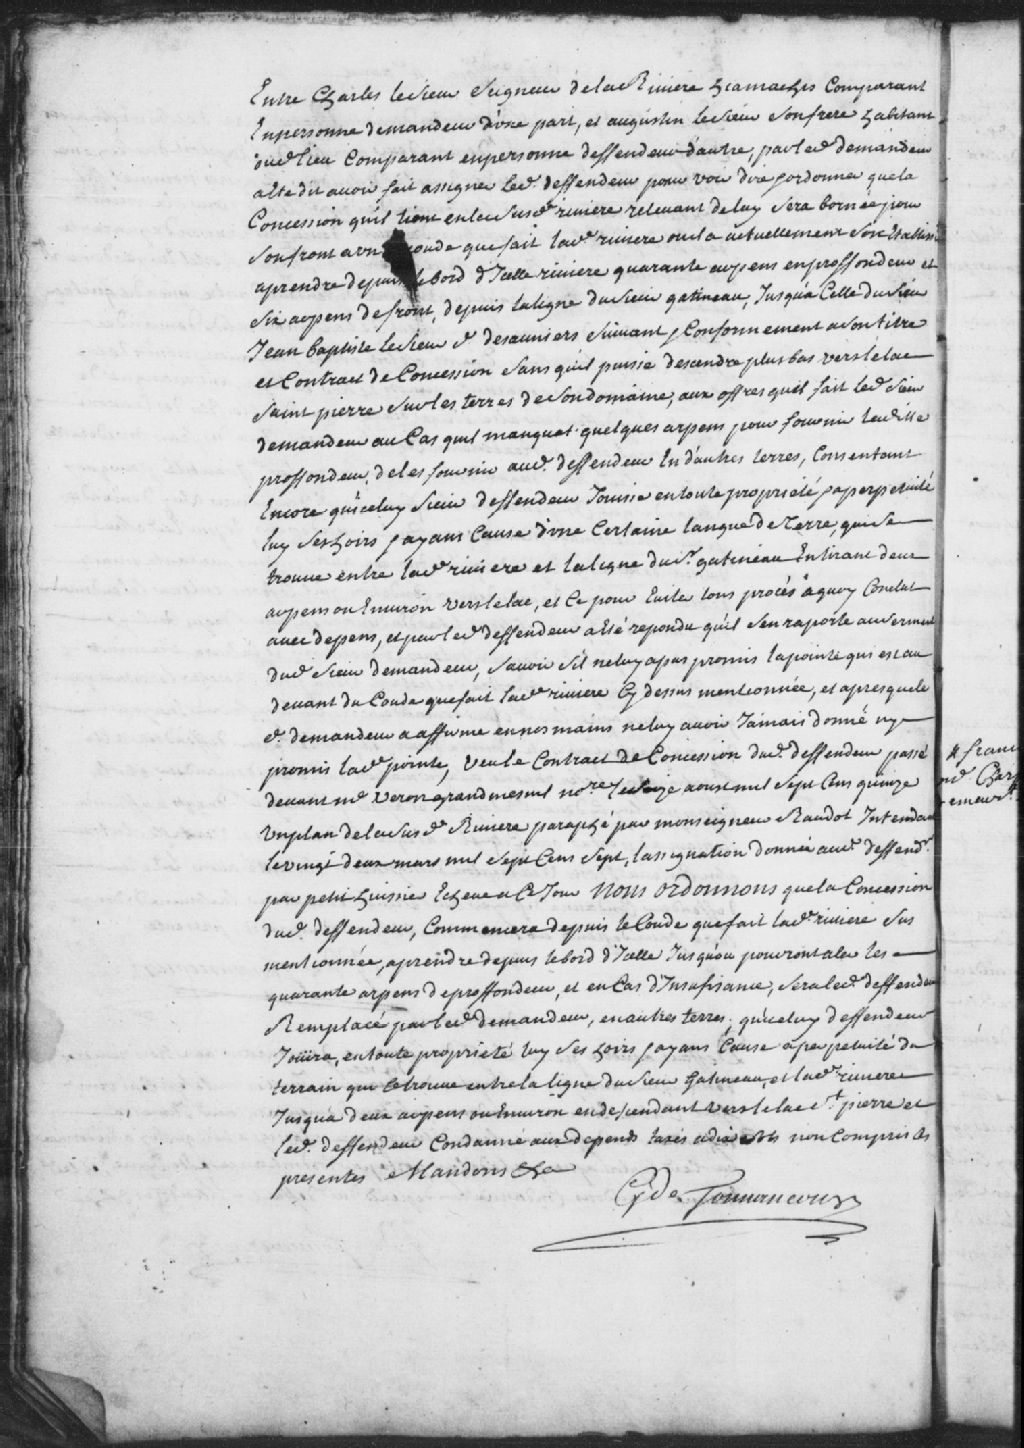 Entre Charles leSieur Seigneur de la Riviere yamachis Comparant
En personne demandeur d'une part, et augustin leSieur son frere habitant
dud lieu Comparant en personne deffendeur d'autre, par led demandeur
a Eté dit avoir fait assigner led. deffendeur pour voir dire & ordonner que la
Concession qu'il tient en la susde riviere relevant de luy sera bornée pour
son front a un coude que fait lade riviere ou la actuellement son Etabliss
aprendre depuis le bord d'Icelle riviere quarante arpens en proffondeur et
Six arpens de front, depuis la ligne du Sieur gatineau, Jusqua Celle du Sieur
Jean baptiste leSieur Sr desauniers Suivant & Conformement a son titre
et Contract de Concession Sans qu'il puisse descendre plus bas vers le lac
Saint pierre sur les terres de son domaine, aux offres quil fait led Sieur
demandeur au Cas quil manquat quelques arpens pour fournir lade
proffondeur, de les fournir aud. deffendeur En d'autres terres, Consentant
Encore qu'iceluy Sieur deffendeur Jouisse en toute proprieté & a perpetuité
luy Ses hoirs & ayans Cause d'une Certaine langue de Terre, qui Se
trouve entre lade riviere et la ligne du Sr. gatineau En tirant deux
arpens ou Environ vers le lac, et Ce pour Eviter tous procés a quoy Conclut
avec depens, et par led deffendeur a Eté repondu qu'il s'en raporte au serment
dud Sieur demandeur, savoir s'il ne luy a pas promis la pointe qui est au
devant du Coude que fait lade riviere Cy dessus mentionnée, et apres que le
d. demandeur a affirmé en nos mains ne luy avoir Jamais donné ny
promis lade pointe, veu le Contract de Concession dud. deffendeur passé
devant Me veron grandmesnil nore le seize aoust mil Sept Cens quinze
un plan de la susde Riviere paraphé par monseigneur Raudot Intendant
le vingt deux mars mil Sept Cens Sept, lassignation donnée aud deffendr.
par petit huissier Echeue a Ce Jour Nous ordonnons que la Concession
dud. deffendeur, Commencera depuis le Coude que fait lade riviere Sus
mentionnée, aprendre depuis le bord d'Icelle Jusqu'ou pouront aler les
quarante arpens de proffondeur, et en Cas d'Insufisance, sera led deffendeur
Remplacé par led demandeur, en autres terres, qu'iceluy deffendeur
Jouira, en toute proprieté luy Ses hoirs & ayans Cause a perpetuité du
terrain qui Se trouve entre la ligne du Sieur Gatineau, et lade riviere
Jusqu'a deux arpens ou Environ en descendant vers le lac St pierre et
led. deffendeur Condamné aux depens taxés a non Compris les
presentes Mandons &a
G de Tonnancour
# franc
Char